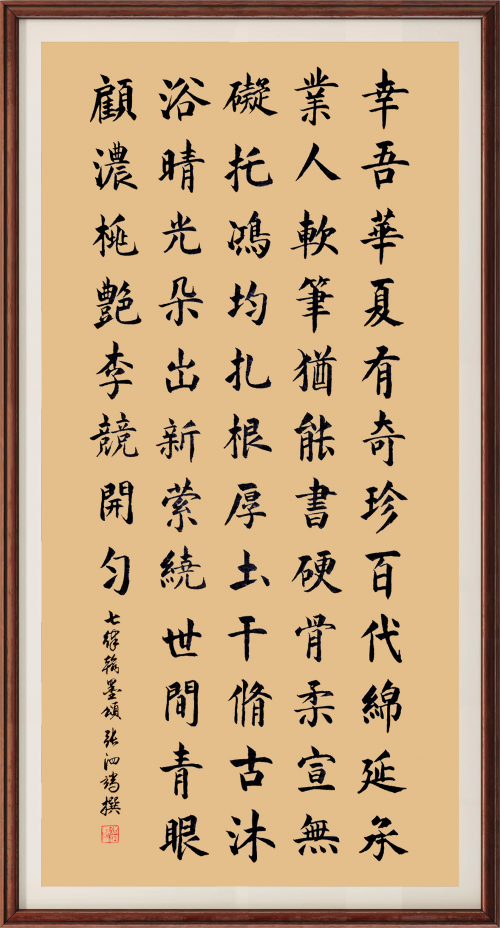 幸吾華夏有奇珍百代綿延承
業人軟筆猶能書硬骨柔宣無
礙托鴻均扎根厚土干脩古沐
浴晴光朵出新縈繞世間青眼
顧濃桃艷李競開勻
七律翰墨頌張泗端撰